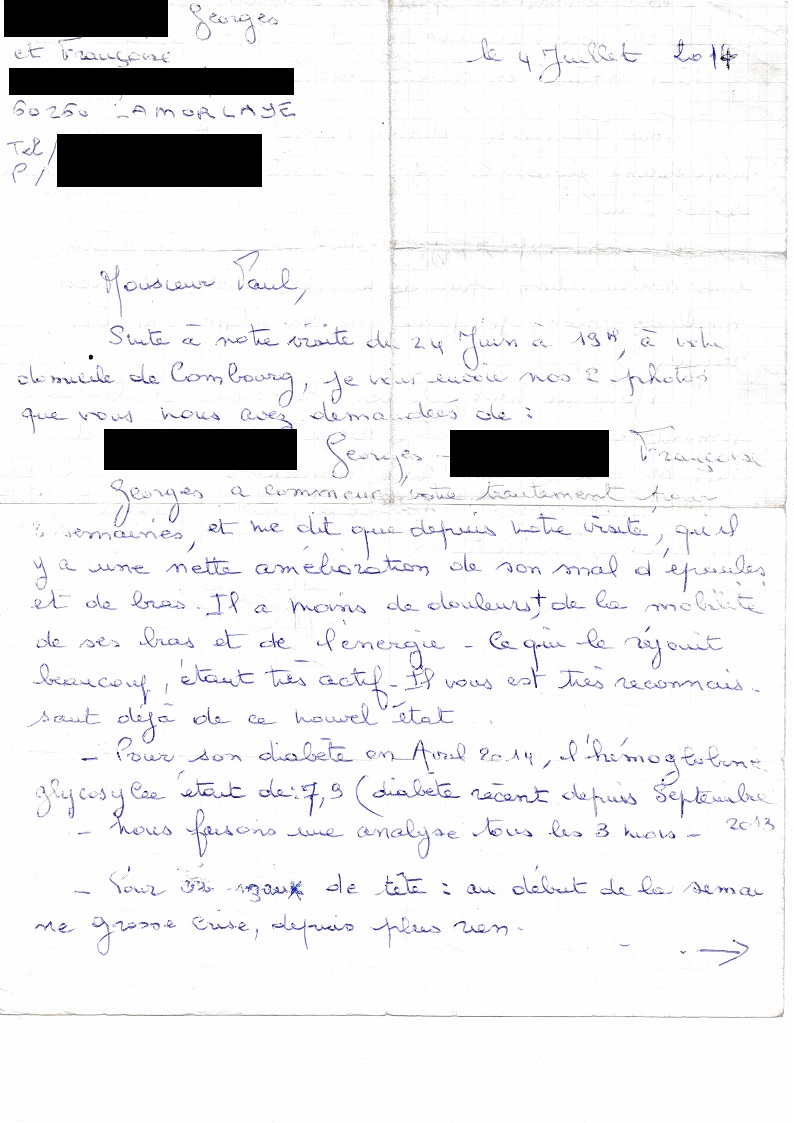 Georges
et Françoise
60260 LAMORLAYE
Tel/
P/
le 4 Juillet 2014
Monsieur Paul,
Suite à notre visite du 24 Juin à 19H, à votre
domicile de Combourg, je vous envoie nos 2 photos
que vous nous avez demandées de :
Georges - Françoise
Georges a commencé votre traitement pour
3 semaines, et me dit que depuis notre visite, qu'il
y a une nette amélioration de son mal d'épaules
et de bras. Il a moins de douleurs, + de la mobilité
de ses bras et de l'énergie - Ce qui le réjouit
beaucoup, étant très actif - Il vous est très reconnais-
sant déjà de ce nouvel état.
- Pour son diabète en Avril 2014, l'hémoglobine
glycosylée était de : 7,9 (diabète récent depuis Septembre
2013
- Nous faisons une analyse tous les 3 mois -
- Pour maux de tête : au début de la semai
ne grosse crise, depuis plus rien.